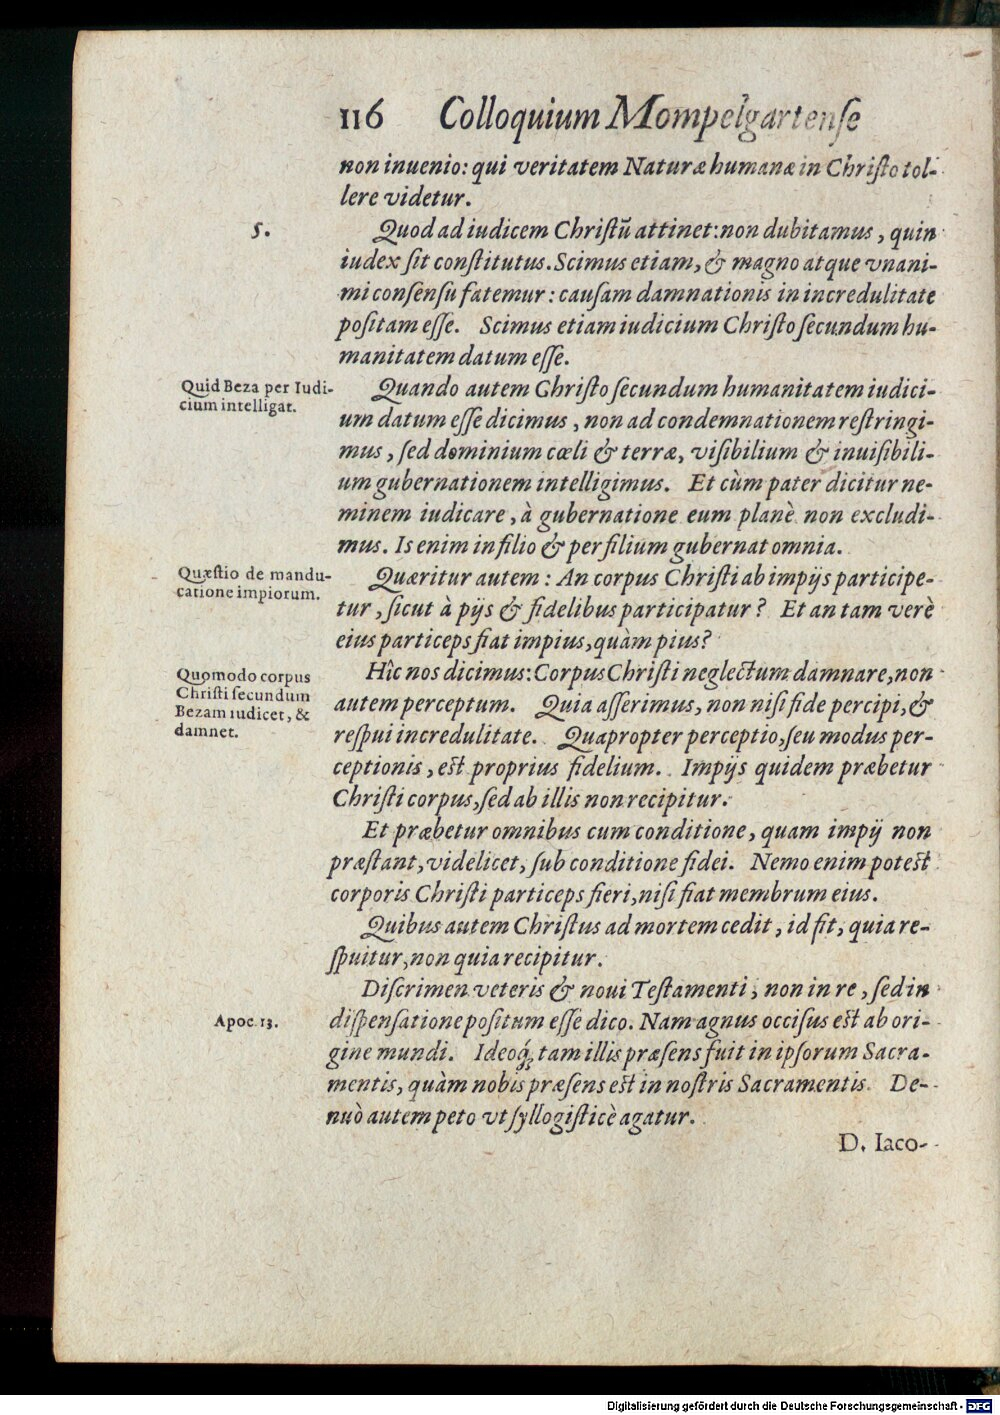 116 Colloquium Mompelgartenſe
non inuenio: qui veritatem Naturæ humanæ in Chriſto tol-
lere videtur.
5.
Quod ad iudicem Chriſtũ attinet: non dubitamus, quin
iudex ſit conſtitutus. Scimus etiam, & magno atque vnani-
mi conſenſu fatemur: cauſam damnationis in incredulitate
poſitam eſſe. Scimus etiam iudicium Chriſto ſecundum hu-
manitatem datum eſſe.
Quid Beza per Iudi-
cium intelligat.
Quando autem Chriſto ſecundum humanitatem iudici-
um datum eſſe dicimus, non ad condemnationem reſtringi-
mus, ſed dominium cœli & terræ, viſibilium & inuiſibili-
um gubernationem intelligimus. Et cùm pater dicitur ne-
minem iudicare, à gubernatione eum planè non excludi-
mus. Is enim in filio & per filium gubernat omnia.
Quæſtio de mandu-
catione impiorum.
Quæritur autem: An corpus Chriſti ab impijs participe-
tur, ſicut à pijs & fidelibus participatur? Et an tam verè
eius particeps fiat impius, quàm pius?
Quomodo corpus
Chriſti ſecundum
Bezam iudicet, &
damnet.
Hîc nos dicimus: Corpus Chriſti neglectum damnare, non
autem perceptum. Quia aſſerimus, non niſi fide percipi, &
reſpui incredulitate. Quapropter perceptio, ſeu modus per-
ceptionis, eſt proprius fidelium. Impijs quidem præbetur
Chriſti corpus, ſed ab illis non recipitur.
Et præbetur omnibus cum conditione, quam impij non
præſtant, videlicet, ſub conditione fidei. Nemo enim poteſt
corporis Chriſti particeps fieri, niſi fiat membrum eius.
Quibus autem Chriſtus ad mortem cedit, id fit, quia re-
ſpuitur, non quia recipitur.
Diſcrimen veteris & noui Teſtamenti, non in re, ſed in
Apoc. 13.
diſpenſatione poſitum eſſe dico. Nam agnus occiſus eſt ab ori-
gine mundi. Ideoq́; tam illis præſens fuit in ipſorum Sacra-
mentis, quàm nobis præſens eſt in noſtris Sacramentis. De-
nuò autem peto vt ſyllogiſticè agatur.
D. Iaco-
Digitalisierung gefördert durch die Deutsche Forschungsgemeinschaft - DFG